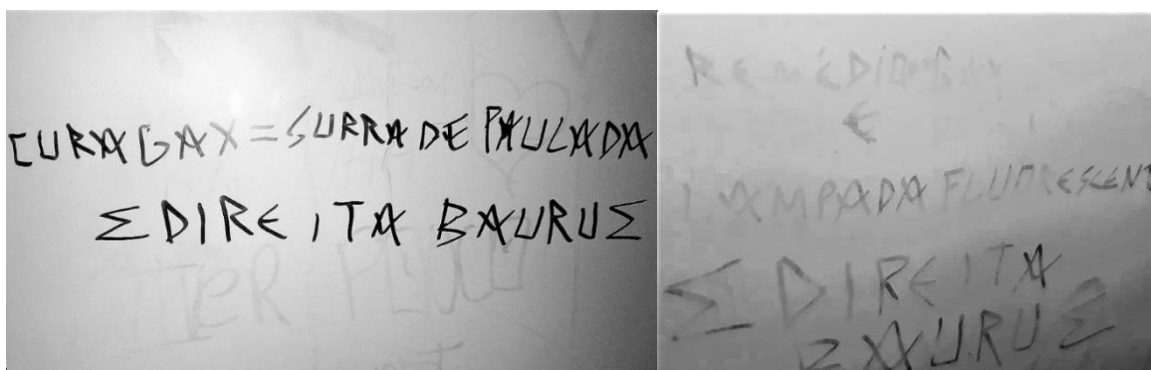 CURA GAY = SURRA DE PAULADA
Σ DIREITA BAURU Σ
TER
REMÉDIO GAY
É
LAMPADA FLUORESCENT
Σ DIREITA
BAURU Σ